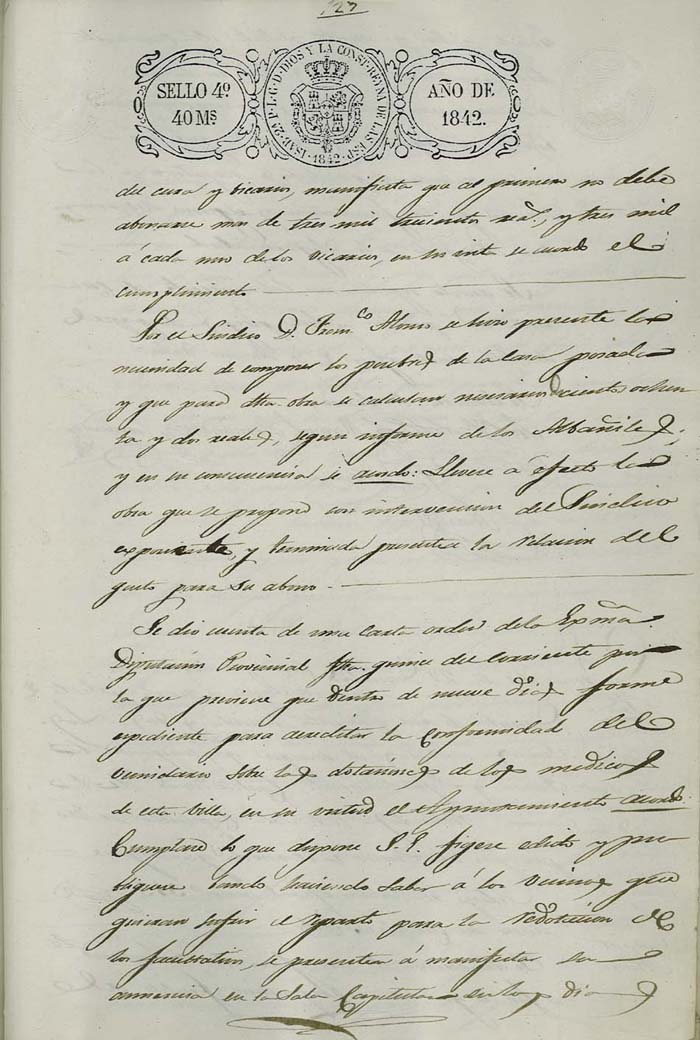 127
SELLO 4º
40 MS
ISAB. 2ª P. L. G. D. DIOS Y LA CONST. REYNA DE LAS ESP.
1842
AÑO DE
1842.
del cura y vicarios, manifiesta que al primero no debe
abonarse mas de tres mil trecientos rea.s, y tres mil
á cada uno de los vicarios, en su vista se acordó el
cumplimiento
Por el Sindico D. Fran.co Alonso se hizo presente la
necesidad de componer los pesebres de la Casa posada
y que para dha obra se calculan necesarios doscientos ochen
ta y dos reales, segun informe de los Albañiles;
y en su consecuencia se acordo: Llevese a efecto la
obra que se propone con intervencion del Sindico
esponente, y terminada presente la relacion del
gasto para su abono.
Se dio cuenta de una carta orden de la Exma.
Diputacion Provincial fha. quince del corriente por
la que previene que dentro de nueve dias forme
espediente para acreditar la Conformidad del
vecindario sobre las dotaciones de los medicos
de esta villa, en su virtud el Ayuntamiento acordo:
Cumplase lo que dispone S. E. figese edicto y pu
bliquese bando haciendo saber á los Vecinos que
quieran sufrir el reparto para la redotacion de
los facultativos, se presenten á manifestar su
anuencia en la Sala Capitular en los dias